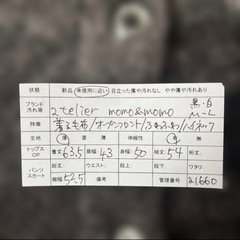 状態 新品 未使用に近い 目立った傷や汚れなし やや傷や汚れあり
ブランド 汚れ等 atelier momo&momo 黒・白 M〜L
特徴 着る毛布/オープンフロント/ふわふわ/ハイネック
生地 薄 普 厚 伸縮性 有 無
トップス OP 着丈 63.5 肩幅 43 身幅 50 袖丈 54 裄丈
パンツ スカート 総丈 ウエスト 股上 股下 ワタリ
裾幅 52.5 備考 管理番号 21660